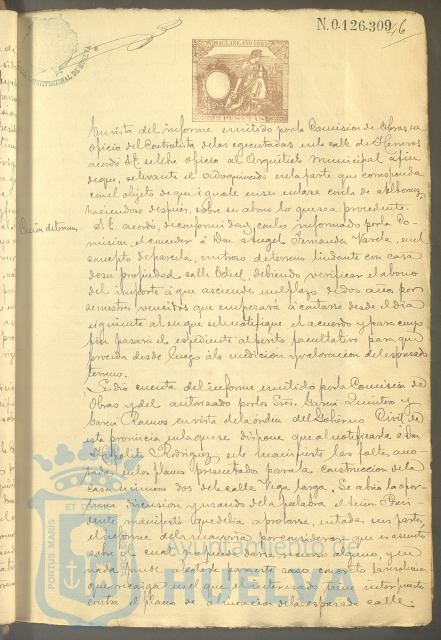 N. 0.126.309
16
10ª CLASE AÑO 1881
2 PESETAS
En vista del informe emitido por la Comision de Obras en
oficio del Contratista de las ejecutadas en la calle de Herreros
acordó S.E. se libre oficio al Arquitecto Municipal á fin
de que, se levante el adoquinado en la parte que corresponda
con el objeto de que iguale en su enlace con la de
haciendose despues, sobre su abono lo que sea procedente.
Cesion de terreno.
S. E. acordó, de conformidad con lo informado por la Co-
mision, el conceder á Don Angel Fernandez Varela, en el
concepto de parcela, un trozo de terreno lindante con casa
de su propiedad calle debiendo verificar el abono
del importe á que asciende en el plazo de dos años por
semestres vencidos que empezará á contarse desde el dia
siguiente al en que se le notifique el acuerdo y para cuyo
fin pasará el espediente al perito facultativo para que
proceda desde luego á la medicion y valoracion del espresado
terreno.
Se dió cuenta del informe emitido por la Comision de
Obras y del autorizado por los Sres. Garcia Quintero y
Garcia Ramos en vista de la órden del Gobierno Civil de
esta provincia en la que se dispone que al notificarle á Don
Hipolito Rodriguez, se le manifieste las faltas, ano-
tadas en los planos presentados para la construccion de la
casa número dos de la calle Vega Larga. Se abrió la opor-
tuna discusion y usando de la palabra el Señor Presi-
dente manifestó que debia aprobarse, en todas sus partes,
el informe de la mayoria por considerar que es asunto
sobre el cual no puede darse informe alguno, y en
nada puede este caso concreto la resolucion
que recaiga en el que el interesado tiene interpuesto
contra el plano de alineacion de la espresada calle.
PORTUS MARIS
ET TERRAE
Ayuntamiento de
HUELVA